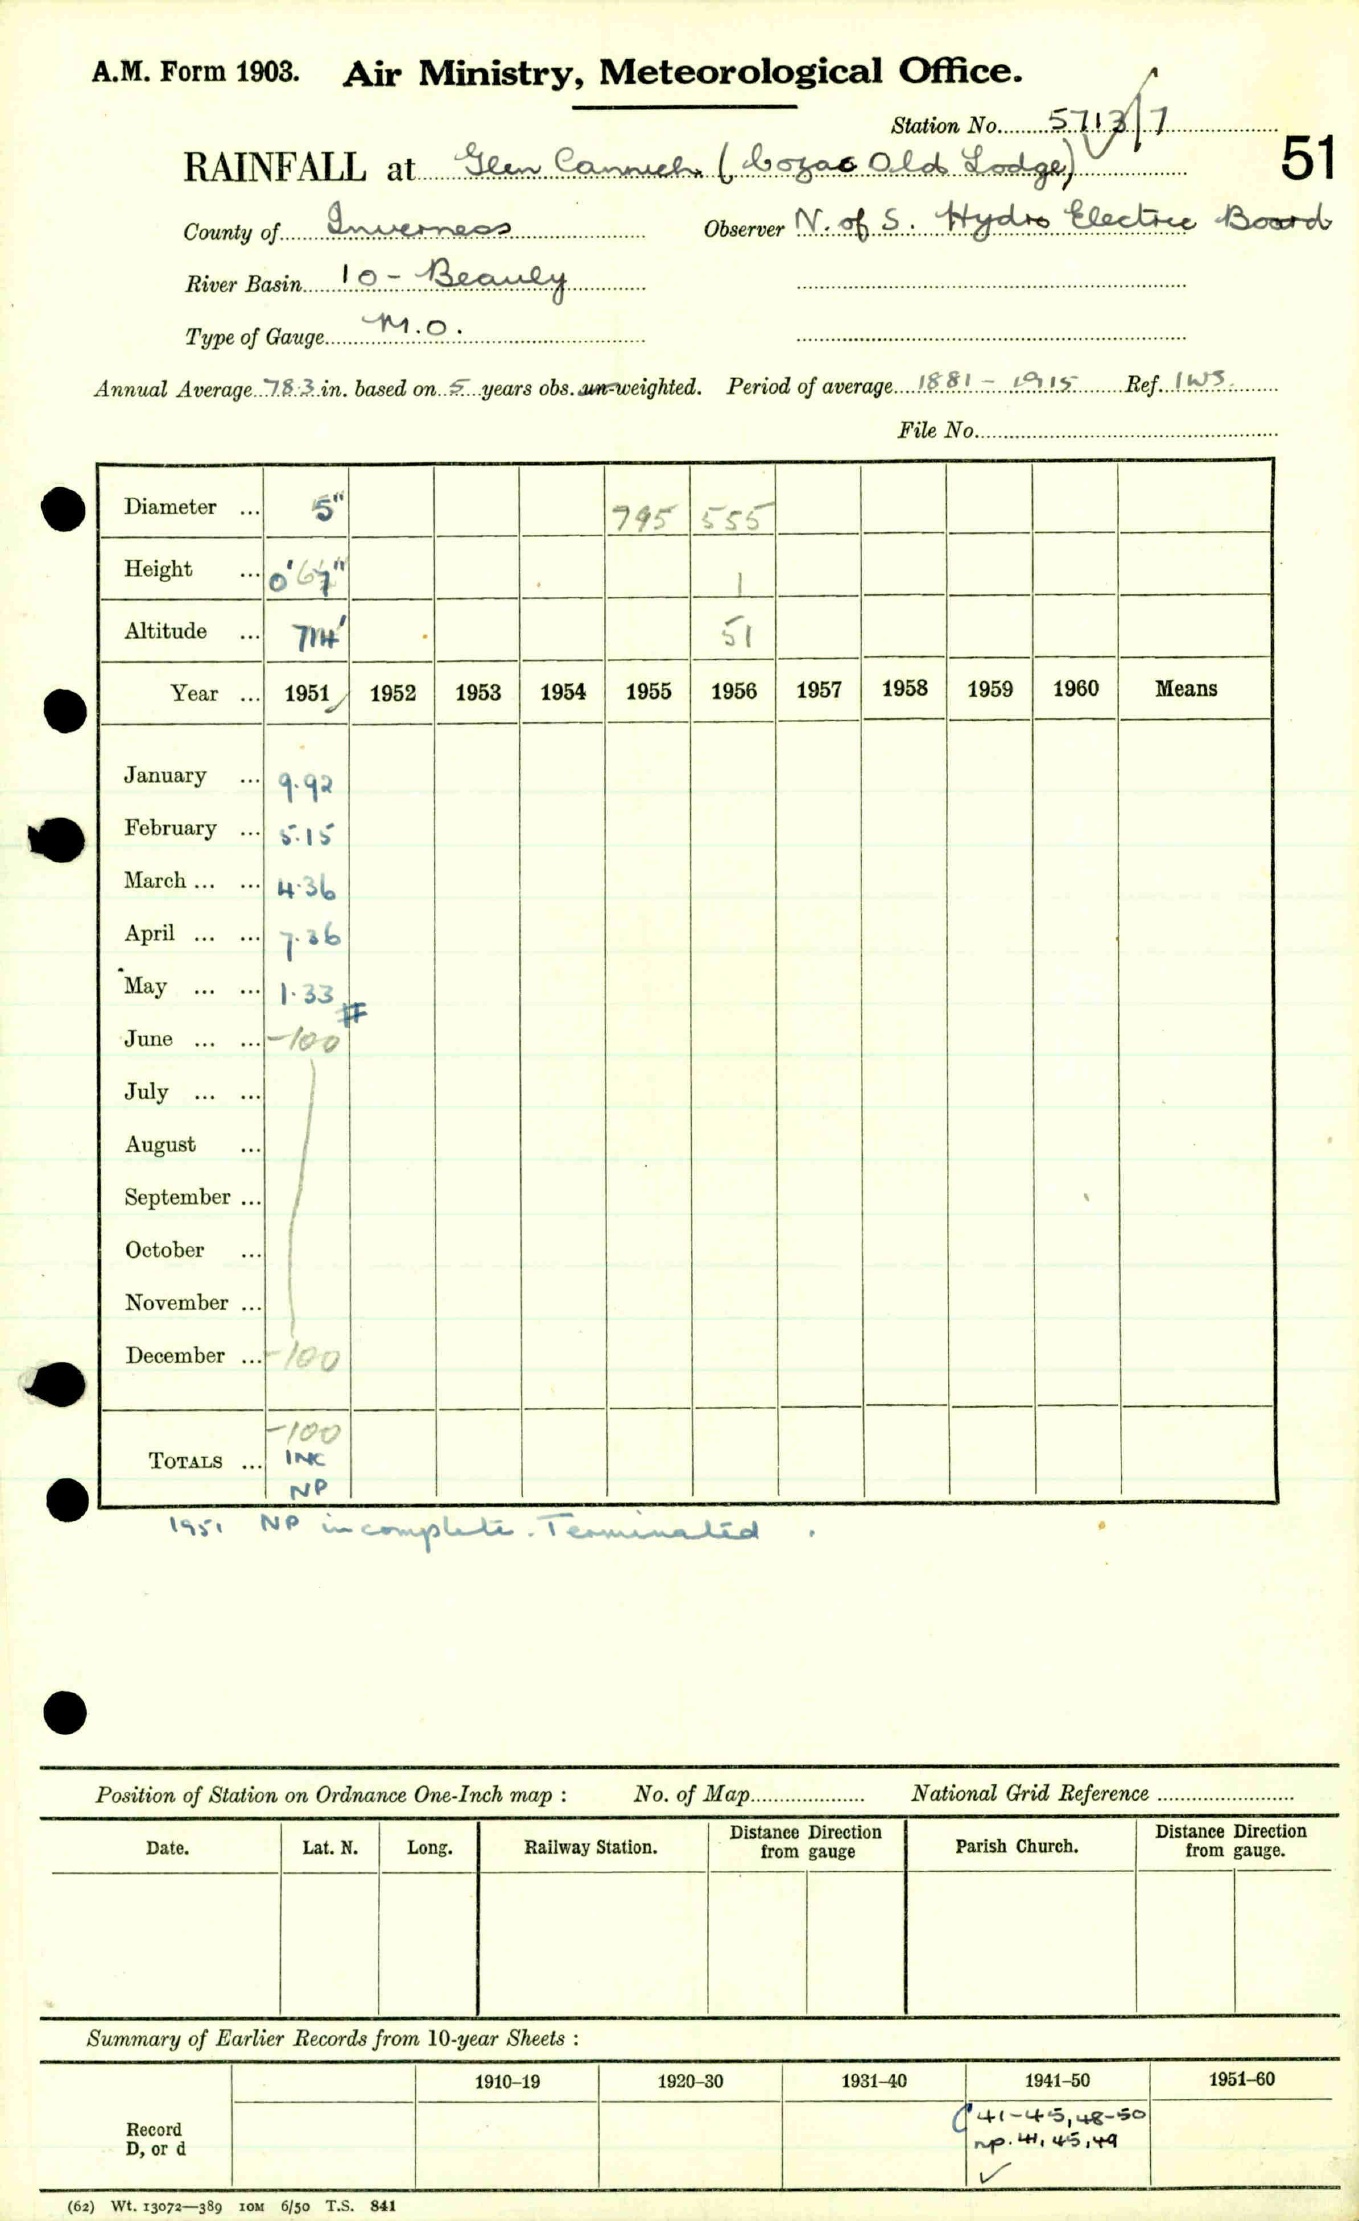 A.M. Form 1903. Air Ministry, Meteorological Office.
Station No. 5713/7
51
RAINFALL at Glen Cannich (Cozac Old Lodge)
County of Inverness Observer N. of S. Hydro Electric Board
River Basin 10 - Beauly
Type of Gauge M.O.
Annual Average 78.3 in. based on 5 years obs. un-weighted. Period of average 1881 - 1915 Ref. IWS.
File No.
Diameter ... 5" 795 555
Height ... 0' 7" 1
Altitude ... 714' 51
Year ... 1951 1952 1953 1954 1955 1956 1957 1958 1959 1960 Means
January ... 9.92
February ... 5.15
March ... ... 4.36
April ... ... 7.36
May ... ... 1.33 #
June ... ... -100
July ... ...
August ...
September ...
October ...
November ...
December ... -100
-100
TOTALS ... INC
NP
1951 NP incomplete. Terminated.
Position of Station on Ordnance One-Inch map : No. of Map National Grid Reference
Date. Lat. N. Long. Railway Station. Distance Direction from gauge Parish Church. Distance Direction from gauge.
Summary of Earlier Records from 10-year Sheets :
1910–19 1920–30 1931–40 1941–50 1951–60
Record D, or d
41-45, 48-50
np. 41, 45, 49
(62) Wt. 13072—389 10M 6/50 T.S. 841